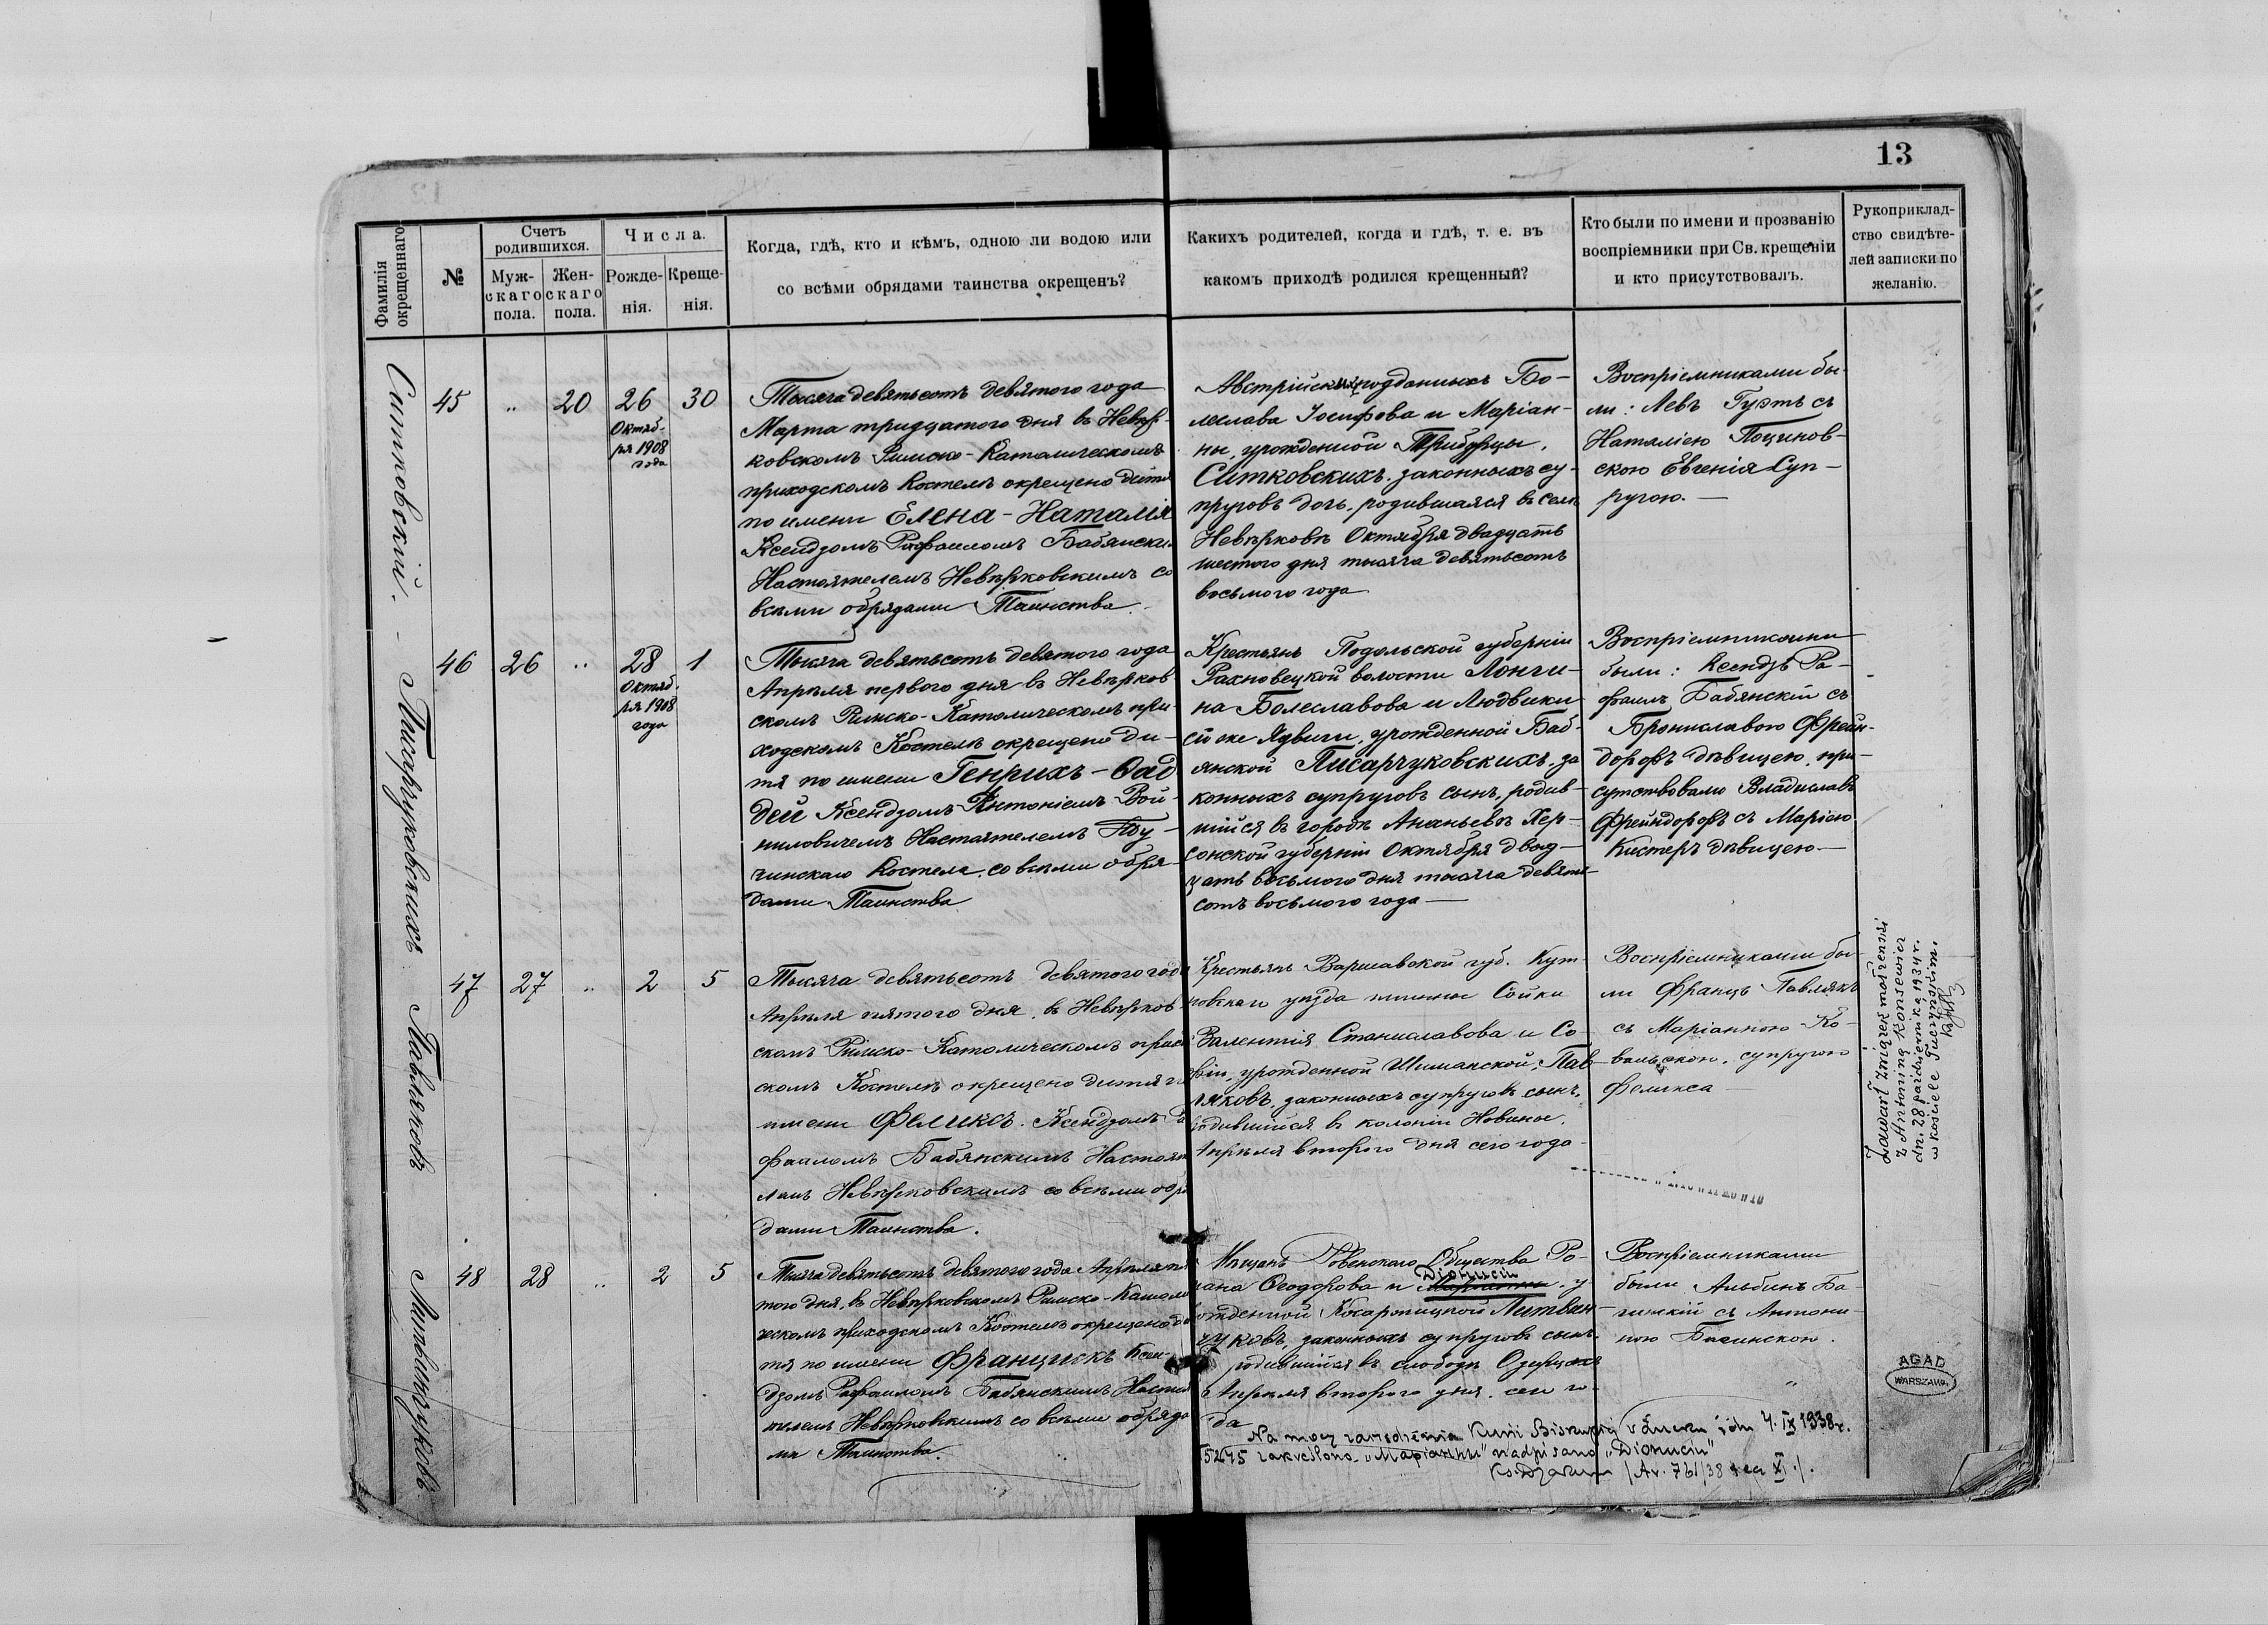 13
Фамилія
окрещеннаго
№
Счетъ
родившихся.
Муж-
скаго
пола.
Жен-
скаго
пола.
Числа.
Рожде-
нія.
Креще-
нія.
Когда, гдѣ, кто и кѣмъ, одною ли водою или
со всѣми обрядами таинства окрещенъ?
Какихъ родителей, когда и гдѣ, т. е. въ
какомъ приходѣ родился крещенный?
Кто были по имени и прозванію
воспріемники при Св. крещеніи
и кто присутствовалъ.
Рукоприклад-
ство свидѣте-
лей записки по
желанію.
Ситковскій.
45
"
20
26
Октяб-
ря 1908
года
30
Тысяча девятьсотъ девятого года
Марта тридцатого дня въ Невѣр-
ковскомъ Римско-Католическомъ
приходскомъ Костелѣ окрещено дитя
по имени Елена-Наталія
Ксендзомъ Рафаиломъ Бабянски
Настоятелемъ Невѣрковскимъ со
всѣми обрядами Таинства.
Австрійскихъ подданныхъ Бо-
леслава Іосифова и Маріан-
ны, урожденной
Ситковскихъ, законныхъ су-
пруговъ дочь, родившаяся въ селѣ
Невѣрковѣ Октября двадцать
шестого дня тысяча девятьсотъ
восьмого года
Воспріемниками бы-
ли: Левъ Гуэтъ съ
Наталіею Поцинов-
скою Евгенія Суп-
ругою.
Писарчуковскихъ
46
26
"
28
Октяб-
ря 1908
года
1
Тысяча девятьсотъ девятого года
Апрѣля первого дня въ Невѣрков
скомъ Римско-Католическомъ при-
ходскомъ Костелѣ окрещено ди-
тя по имени Генрихъ-Фад
дей Ксендзомъ Антоніемъ Вой-
ниловичемъ Настоятелемъ Ту-
чинскаго Костела, со всѣми обря-
дами Таинства
Крестьянъ Подольской губерніи
Рахновецкой волости Лонги-
на Болеславова и Людвики
ой же Ядвиги, урожденной Баб-
янской Писарчуковскихъ, за
конныхъ супруговъ сынъ, родив-
шійся въ городѣ Ананьевѣ Хер-
сонской губерніи Октября двад-
цать восьмого дня тысяча девять-
сотъ восьмого года
Воспріемниками
были: Ксендзъ Ра-
фаилъ Бабянскій съ
Брониславою Фрейн-
дорфъ дѣвицею, при-
сутствовали Владиславъ
Фрейндорфъ съ Маріею
Кистеръ дѣвицею
Павляковъ
47
27
"
2
5
Тысяча девятьсотъ девятого года
Апрѣля пятого дня, въ Невѣрков
скомъ Римско-Католическомъ приход
скомъ Костелѣ окрещено дитя по
имени Феликсъ. Ксендзомъ Ра
фаиломъ Бабянскимъ Настояте
лемъ Невѣрковскимъ со всѣми обря
дами Таинства.
Крестьянъ Варшавской губ. Кут-
новскаго уѣзда гмины Сойки
Валентія Станиславова и Со-
фіи, урожденной Шиманской, Пав-
ляковъ, законныхъ супруговъ сынъ,
родившійся въ колоніи Новины,
Апрѣля второго дня сего года
Воспріемниками бы-
ли Францъ Павлякъ
съ Маріанною Ко-
вальскою, супругою
Феликса
Zawarł związek małżeński
z Antoniną Konsewicz
dn. 28 października 1934 r.
w kościele Tuczyńskim.
Литвинчуковъ
48
28
"
2
5
Тысяча девятьсотъ девятого года Апрѣля пя
того дня, въ Невѣрковскомъ Римско-Католи
ческомъ приходскомъ Костелѣ окрещено ди
тя по имени Францискъ Ксен-
дзомъ Рафаиломъ Бабянскимъ Настоя
телемъ Невѣрковскимъ со всѣми обряда
ми Таинства.
Мѣщанъ Ровенскаго Общества Ро-
мана Ѳеодорова и Маріанны, у
Діонисіи
рожденной Косаржицкой Литвин-
чуковъ, законныхъ супруговъ сынъ,
родившійся въ слободѣ Озерцахъ
Апрѣля второго дня, сего го-
да
Воспріемниками
были Альбинъ Ба-
гинскій съ Антони-
ною Багинскою.
Na mocy zarządzenia Kurii Biskupiej w Łucku z dn. 4. IX 1938 r.
5245 zakreślono „Маріанны" nadpisano „Dionisii"
AGAD
WARSZAWA